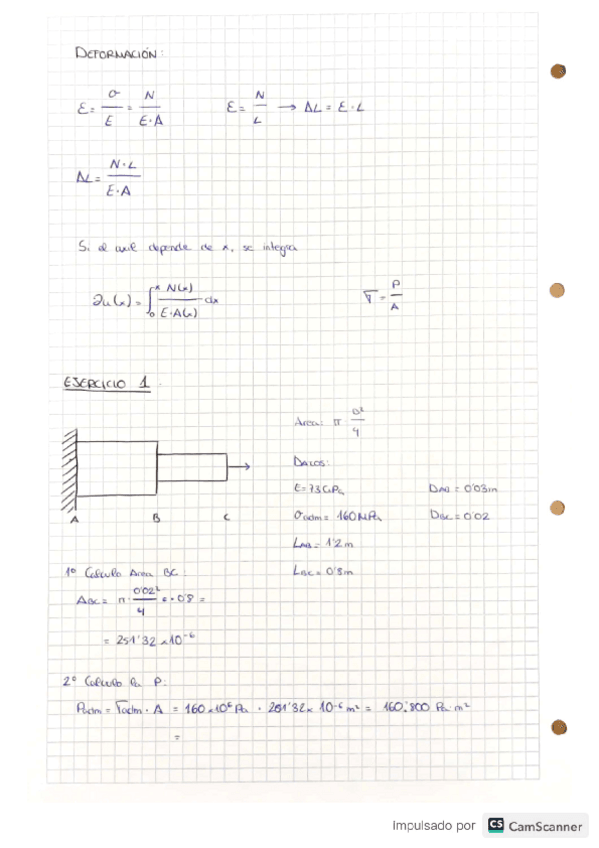 DEFORMACIÓN:
ε = σ/E = N/(E·A)    ε = N/L → ΔL = ε·L
ΔL = N·L/(E·A)
Si el axil depende de x, se integra
∂u(x) = ∫₀ˣ N(x)/(E·A(x)) dx    σ = P/A
EJERCICIO 1.
Area: π D²/4
DATOS:
E = 73 GPa    D_AB = 0'03 m
σadm = 160 MPa    D_BC = 0'02
L_AB = 1'2 m
A B C
1º Calculo Area BC:    L_BC = 0'8 m
A_BC = π · 0'02²/4 · 0'8 =
= 251'32 x 10⁻⁶
2º Calculo la P:
Padm = σadm · A = 160 x 10⁶ Pa · 251'32 x 10⁻⁶ m² = 160.800 Pa·m²
=
Impulsado por CS CamScanner